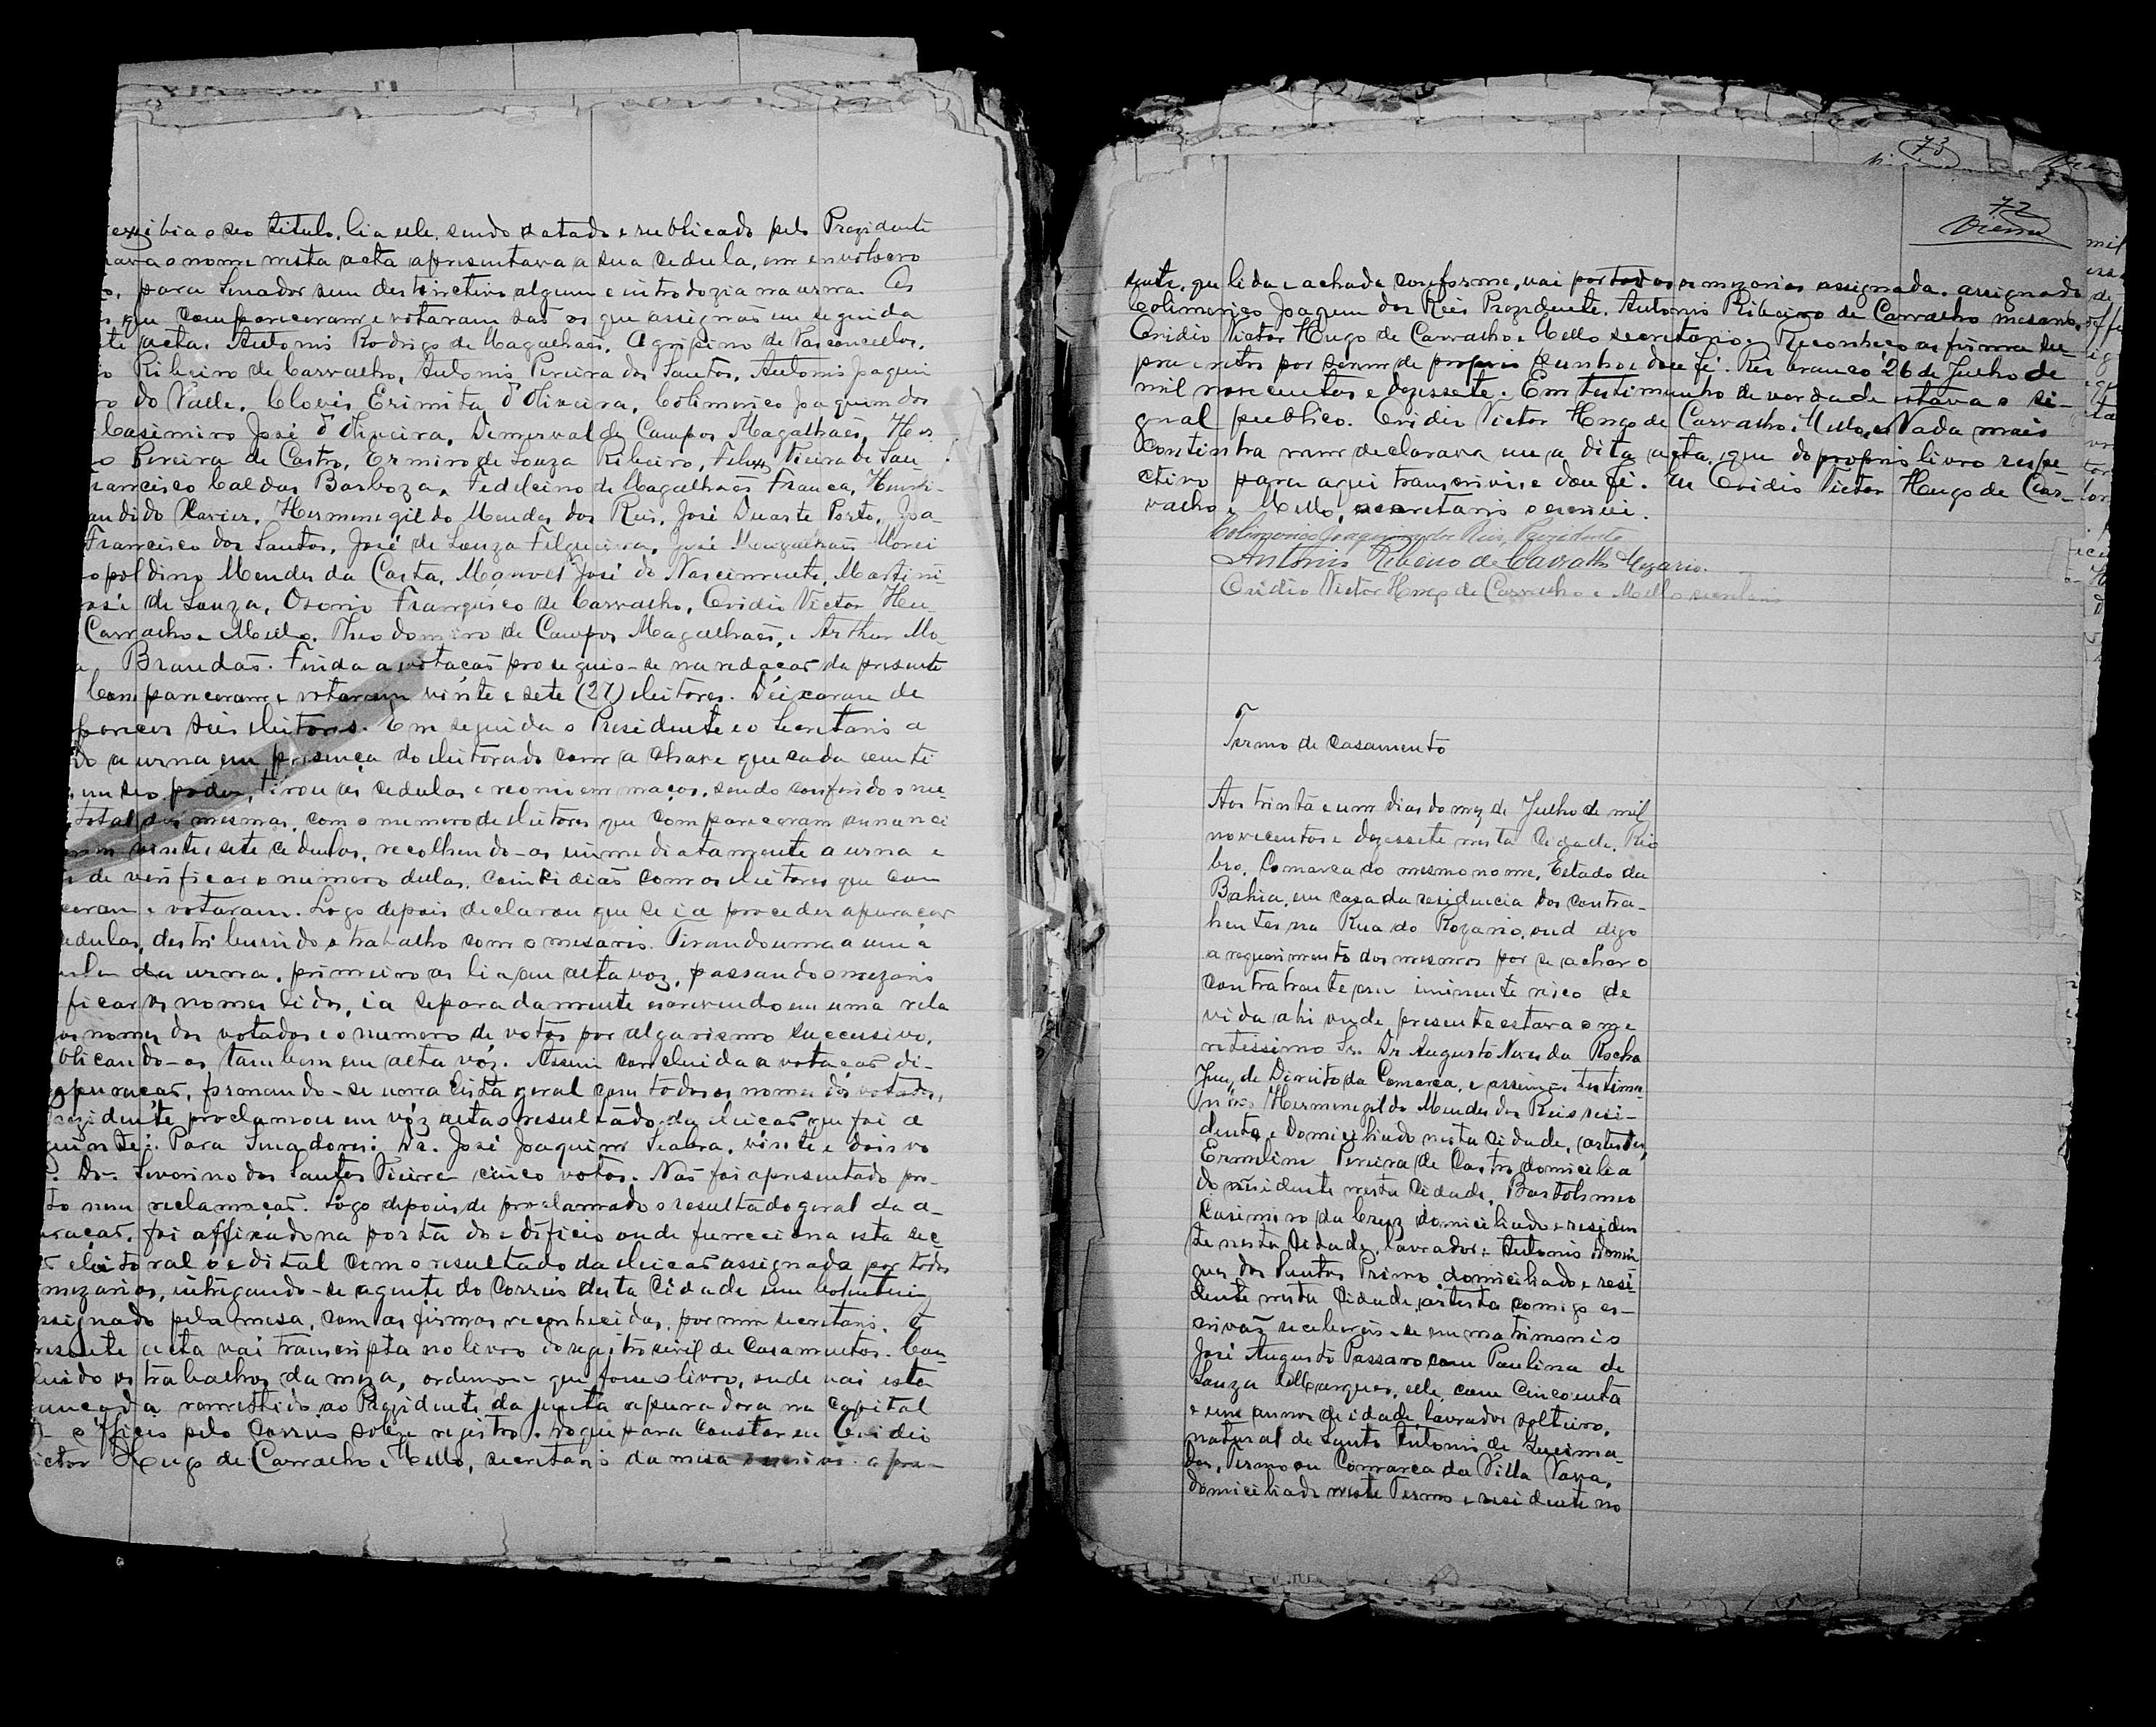 exibia o seo titulo, lia elle, sendo datado e rubricado pelo Prezidente
o nome nesta acta apresentava a sua cedula, em envolvoro
para Senador sem destinctivo algum e introdozia na urna. Os
que compareceram e votaram sao os que assignão em seguida
acta. Antonio Rodrigo de Magalhaes, Agripino de Vasconcellos,
Ribeiro de Carvalho, Antonio Pereira dos Santos, Antonio Joaquim
do Valle, Clovis Erimita d'Oliveira, Colimerico Joaquim dos
Casimiro José d'Oliveira, Demerval de Campos Magalhães, Her
Pereira de Castro, Ermiro de Souza Ribeiro, Felix Vieira de San
Francisco Caldas Barboza, Fidelcino de Magalhaes Franca, Henri-
Xavier, Hermenegildo Mendes dos Reis, José Duarte Porto, Joa-
Francisco dos Santos, José de Souza Filgueira, José Magalhaes
Mendes da Costa, Manoel José do Nascimento, Martini
de Souza, Osorio Francisco de Carvalho, Ovidio Victor Hu
Carvalho e Mello, Theodomiro de Campos Magalhaes, e Arthur Mo
Brandão. Finda a votacaõ proseguio-se na redacaõ da presente
Compareceram e votaram vinte e sete (27) eleitores. Deixaram de
seis eleitores. Em seguida o Presidente e o Secretario a
a urna em presença do eleitorado com a chave que cada um ti
em seo poder, tirou as cedulas e reonio em maços, sendo conferido o nu-
total das mesmas, com o numero de eleitores que compareceram annunci
vinte e sete cedulas, recolhendo-as immediatamente a urna e
de verificar o numero dellas, coincidiaõ com os eleitores que com
e votaram. Logo depois declarou que se ia proceder apuracaõ
cedulas, destribuindo o trabalho com o mesario. Tirando uma a uma
da urna, primeiro as lia em alta voz, passando o mezario
ficar os nomes lidos, ia separadamente escrevendo em uma rela
os nomes dos votados e o numero de votos por algarismo successivo,
publicando-os, tambem em alta voz. Assim concluida a votacaõ di-
apuracaõ, formando-se uma lista geral com todos os nomes dos votados,
prezidente proclamou em vóz alta o resultado da eleicaõ que foi a
guinte: Para Senadores: Dr. José Joaquim Seabra, vinte e dois vo
Dr. Severino dos Santos Vieira cinco votos. Naõ foi apresentado pro-
to nem reclamacaõ. Logo depois de proclamado o resultado geral da a-
puracaõ, foi affixado na porta do edificio onde funcciona esta sec
eleitoral o edital com o resultado da eleicaõ assignada por todos
mezarios, entregando-se agente do Correio desta Cidade um boletim
assignado pela mesa, com as firmas reconhecidas, por mim secretario. A
presente acta vai transcripta no livro do registro civil de Casamentos. Con-
luido os trabalhos da meza, ordenou-se que fosse o livro, onde vai esta
remettido ao Prezidente da junta apuradora na Capital
officio pelo correio sobre registro. do que para constar eu Ovidio
Victor Hugo de Carvalho e Mello, secretario da mesa escrivi a pre-
73
72
Vieira
sente, que lida e achada conforme, vai por todos os mezarios assignada. assignado
Colimerico Joaquim dos Reis Prezidente. Antonio Ribeiro de Carvalho mesario.
Ovidio Victor Hugo de Carvalho e Mello secretario. Reconheço as firma su-
pra escritos por serem de proprio punho e dou fé. Rio branco 26 de Julho de
mil novecentos e dezessete. Em testimunho de verdade estava o si-
gnal publico. Ovidio Victor Hugo de Carvalho e Mello. Nada mais
continha nem declarava em a dita acta, que do proprio livro respe
ctivo para aqui transcrivi e dou fé. Eu Ovidio Victor Hugo de Car-
valho e Mello, secretario escrivi.
Colimerico Joaquim dos Reis, Prezidente
Antonio Ribeiro de Carvalho Mezario.
Ovidio Victor Hugo de Carvalho e Mello secretario
Termo de casamento
Aos trinta e um dias do mez de Julho de mil
novecentos e dezessete nesta Cidade, Rio
bro. Comarca do mesmo nome, Estado da
Bahia, em casa da residencia dos contra-
hentes na Rua do Rozario, ond digo
a requerimento dos mesmos por se achar o
contratante em iminente risco de
vida ahi onde presente estava o me
retissimo Sr. Dr Augusto Neves da Rocha
Juiz de Direito da Comarca, e assim as testimu-
nhas Hermenegildo Mendes dos Reis resi-
dente e domiciliado nesta Cidade, artista,
Ermelino Pereira de Castro domicilia
do residente nesta Cidade, Bartolomeo
Casimiro da Cruz domiciliado e residen
te nesta Cidade, lavrador, e Antonio Domin
gues dos Santos Primo domiciliado e resi
dente nesta Cidade, artista comigo es-
crivaõ receberaõ-se em matrimonio
José Augusto Passaro com Paulina de
Souza Marques, elle com cincoenta
e um annos de idade, lavrador solteiro,
natural de Santo Antonio de Queima-
das, Termo ou Comarca da Villa Nova,
domiciliado neste Termo e residente no